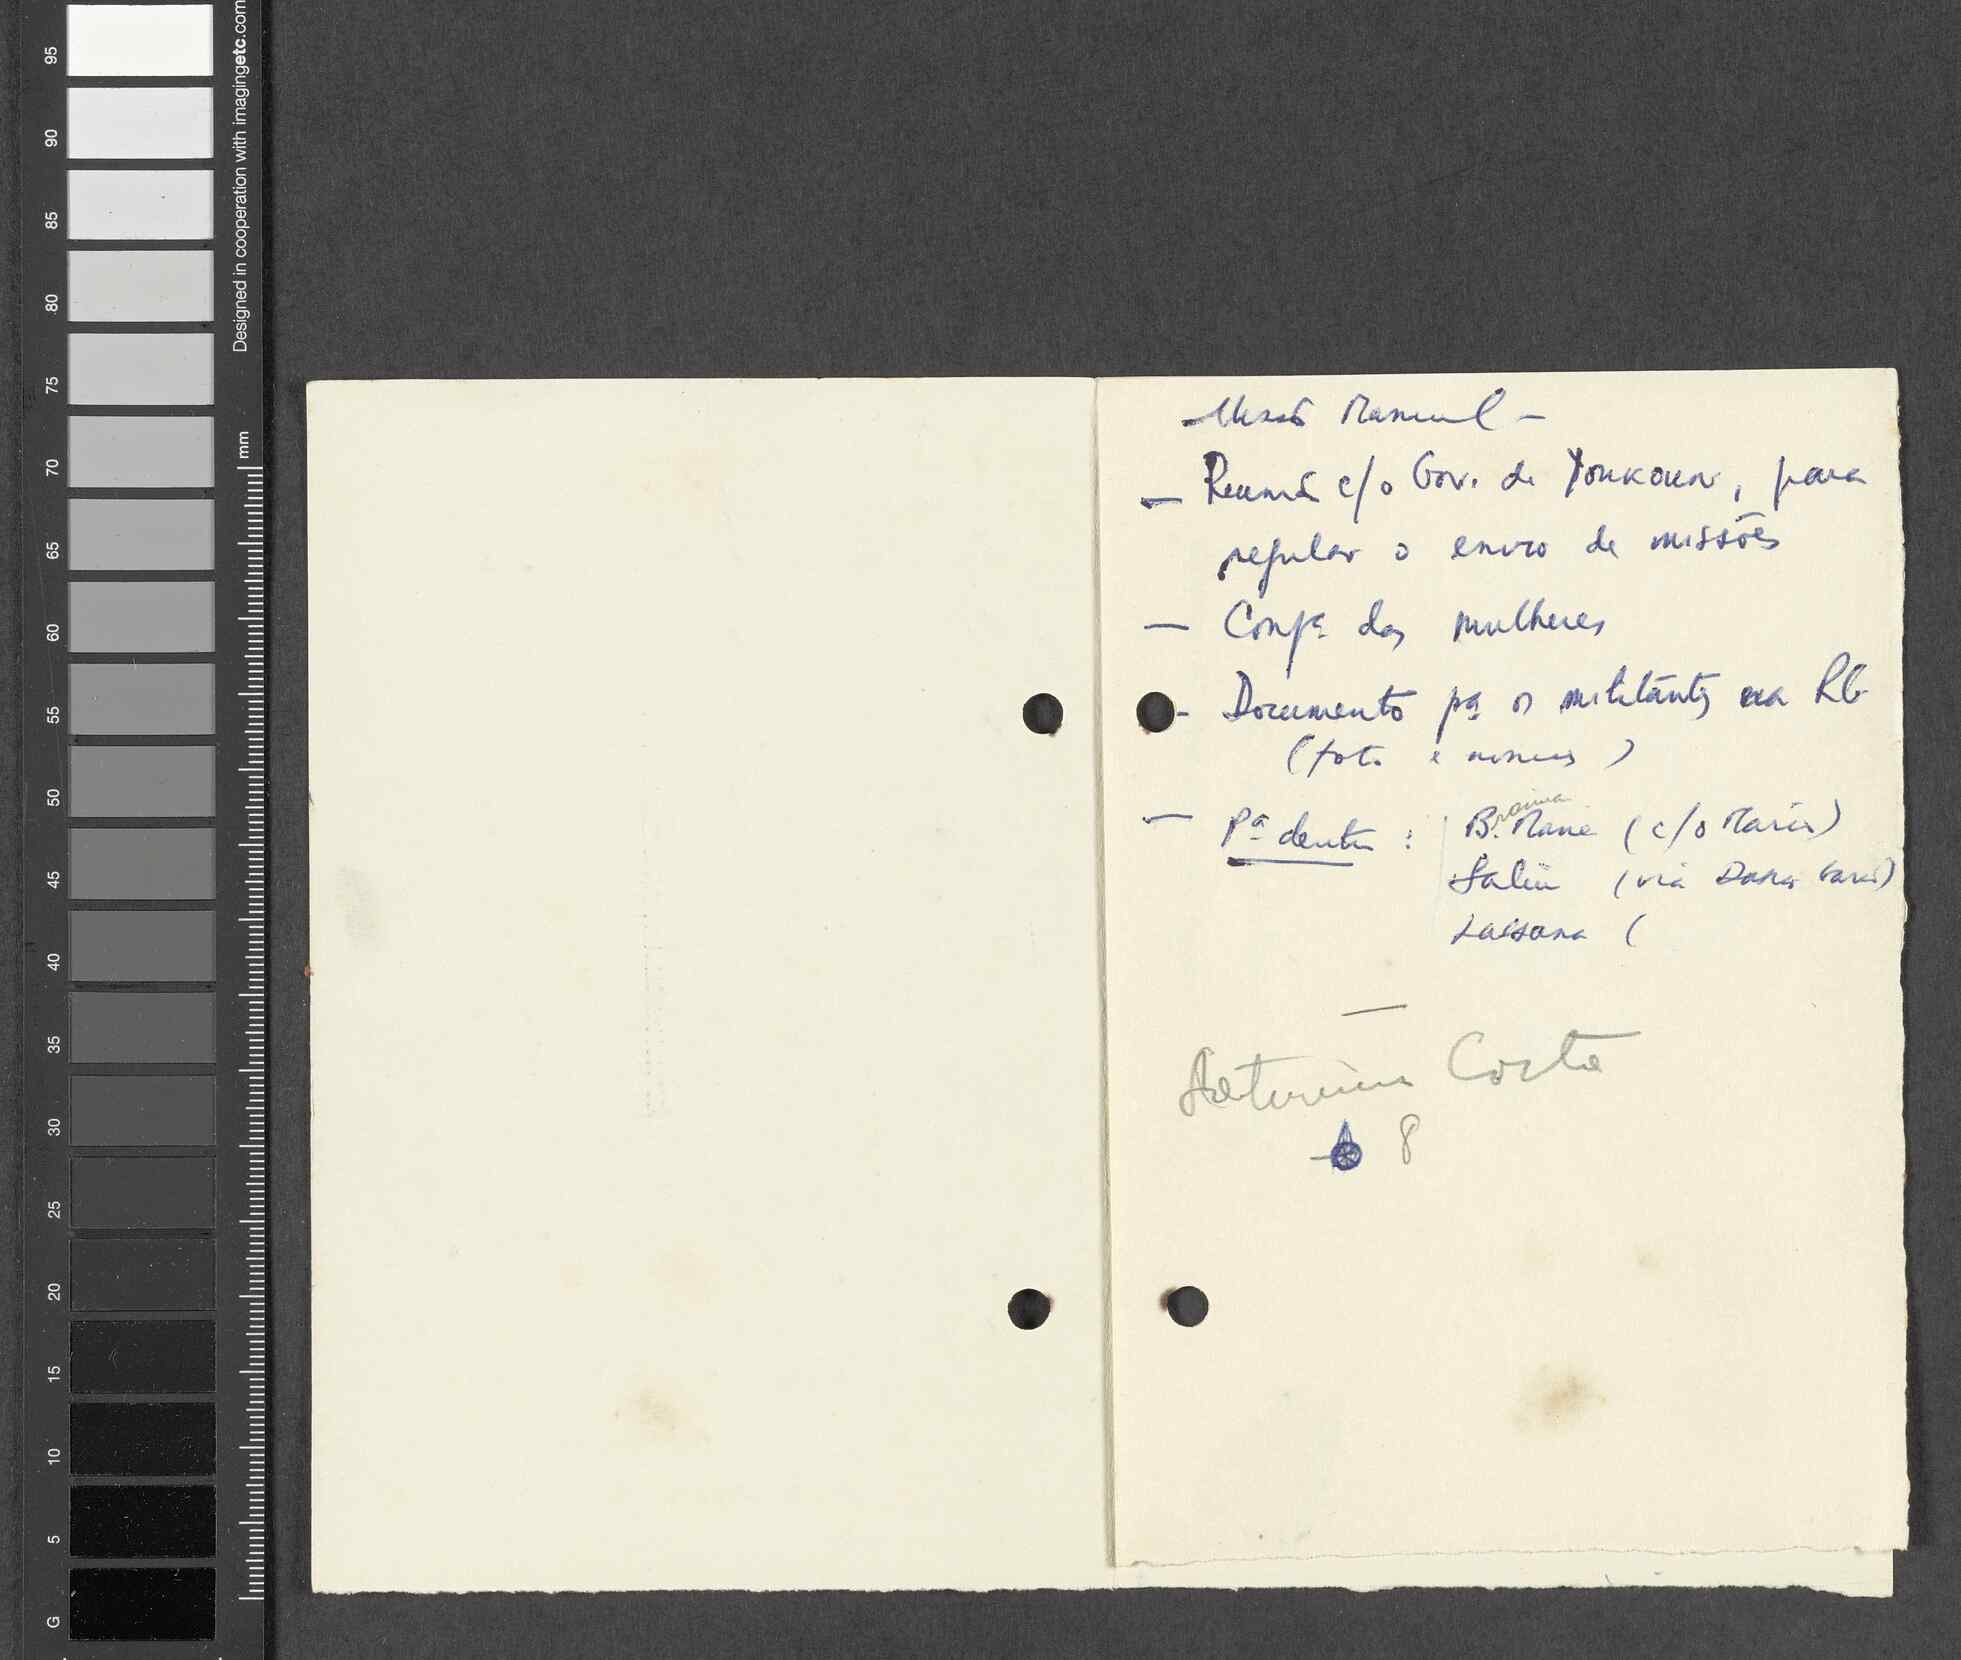 95
90
85
80
75
70
65
60
55
50
45
40
35
30
25
20
15
10
5
G
Designed in cooperation with imagingetc.com
mm
Manuel –
– Reunião c/o Gov. de Youkoun, para
regular o envio de missões
– Confª das mulheres
- Documento pª os militantes na RG
(foto e nomes)
– Pª dentro : Braima Mané (c/o Maria)
Saliu (via
Lassana (
–
Costa
8